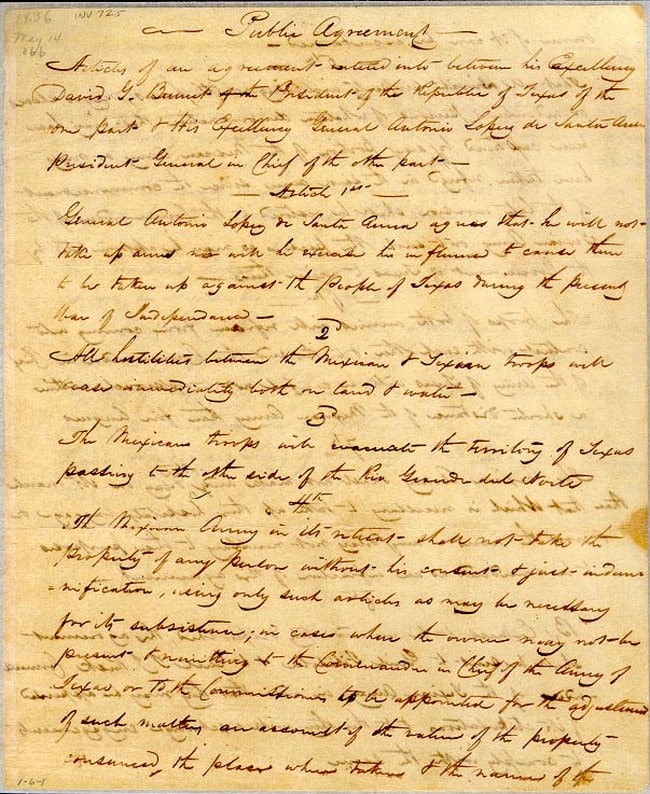 1836 INV 725
May 14
266
Public Agreement
Articles of an agreement entered into between his Excellency
David G. Burnet of the President of the Republic of Texas of the
one part & His Excellency General Antonio Lopez de Santa Anna
President General in Chief of the other part —
— Article 1st —
General Antonio Lopez de Santa Anna agrees that he will not
take up arms nor will he exercise his influence to cause them
to be taken up against the People of Texas during the present
War of Independence —
2
All hostilities between the Mexican & Texian troops will
cease immediately both on land & water —
3
The Mexican troops will evacuate the territory of Texas
passing to the other side of the Rio Grande del Norte
4th
The Mexican Army in its retreat shall not take the
property of any person without his consent & just indem
=nification, using only such articles as may be necessary
for its subsistence, in cases where the owner may not be
present & remitting to the Commander in Chief of the Army of
Texas or to the Commissioner to be appointed for the adjustment
of such matters an account of the value of the property
consumed, the place where taken & the name of the
1-6-1